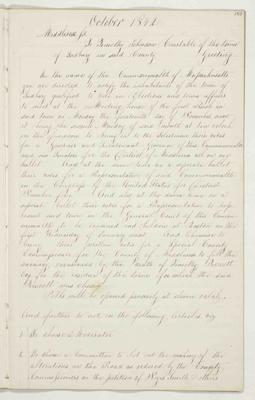 October 1842
Middlesex ss.
To Timothy Johnson Constable of the town
of in said County Greeting
In the name of the Commonwealth of Massachusetts
you are directed to notify the inhabitants of the town of
qualified to vote in Elections and town affairs
to meet at the Meeting house of the first Parish in
said town on Monday the fourteenth day of November next
it being the second Monday of said month at ten o'clock
in the forenoon to bring in to the Selectmen their votes
for a Governor and Lieutenant Governor of this Commonwealth
and Senators for the District of Middlesex all on one
ballot And at the same time on a separate ballot
their votes for a Representative of said Commonwealth
in the Congress of the United States for District
Number And also at the same time on a
separate ballot their votes for a Representative to represent
said town in the General Court of this Commonwealth
to be convened and holden at Boston on the
first Wednesday of January next And likewise to
bring their votes for a Special County
Commissioner for the County of Middlesex to fill the
vacancy occasioned by the death of Timothy
for the residue of the term for which the said
was chosen
Polls will be opened precisely at eleven o'clock
And further to act on the following Articles viz
1 To choose a Moderator
2 To choose a Committee to let out the making of the
alterations in the Road as ordered by the County
Commissioners on the petition of Smith & others